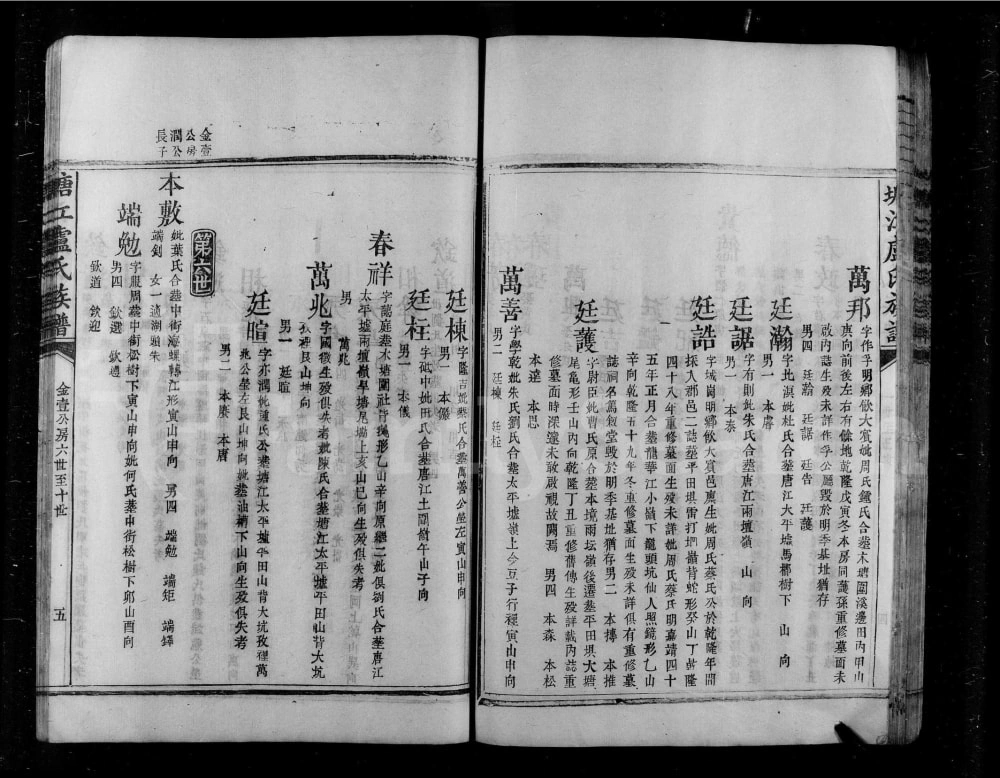 萬邦
字作孚明鄉飲大賓妣周氏鍾氏合塟木塘圍溪邊田丙甲山
庚向前後左右有餘地乾隆戊寅冬本房同護孫重修墓面未
啟內誌生歿未詳作孚公廳毀於明季基址猶存
男四 廷瀚 廷誥 廷護
廷瀚
字北淇妣杜氏合塟唐江大平墟馬櫛樹下 山 向
男一 本膚
廷
字有則妣朱氏合塟唐江兩壇嶺 山 向
男一 本泰
廷誥
字城崗明鄉飲大賓邑廩生妣周氏蔡氏公於乾隆年間
採入郡邑二誌塟平田垻雷打坵嶺背蛇形癸山丁向乾隆
四十八年重修墓面生歿未詳妣周氏蔡氏明嘉靖四十
五年正月合塟龍華江小嶺下龍頭坑仙人照鏡形乙山
辛向乾隆五十九年冬重修墓面生歿未詳俱有重修墓
誌祠名萬敘堂毀於明季基址猶存男二 本摶 本推
廷護
字尉臣妣曹氏原合塟本境兩坛嶺後遷塟平田垻大塘
尾龜形壬山丙向乾隆丁丑重修舊傳生歿詳載內誌重
修墓面時深邃未敢啟視故闕焉 男四 本森 本松
本達 本思
萬善
字學乾妣朱氏劉氏合塟太平墟嶺上今亙子行裡寅山申向
男二 廷棟 廷柱
廷棟
字隆吉妣蔡氏合塟萬善公塋左寅山申向
男一 本儼
廷柱
字砥中妣田氏合塟唐江土閣嶺午山子向
男一 本儀
春祥
字萬庭塟木塘圍社背槐形乙山辛向原繼二妣俱劉氏合塟唐江
太平墟兩壇嶺旱塘尾墈上亥山巳向生歿俱失考
男 萬兆
萬兆
字國徵生歿俱失考妣陳氏合塟塘江太平墟平田山背大坑
孜裡艮山坤向
男一 廷暄
廷暄
字亦潤妣鍾氏公塟塘江太平墟平田山背大坑孜裡萬
兆公塋左艮山坤向妣塟油槽下山向生歿俱失考
男二 本賡 本唐
第六世
金壹
公房
潤公
長子
本敷
妣葉氏合塟中街海螺轉江形寅山申向 男四 端勉 端矩 端鐸
端釗 女一適湖頭朱
端勉
字服周塟中街松樹下寅山申向妣何氏塟中街松樹下卯山酉向
男四 欽選 欽禮
欽道 欽迎
塘江盧氏族譜
金壹公房六世至十世
五